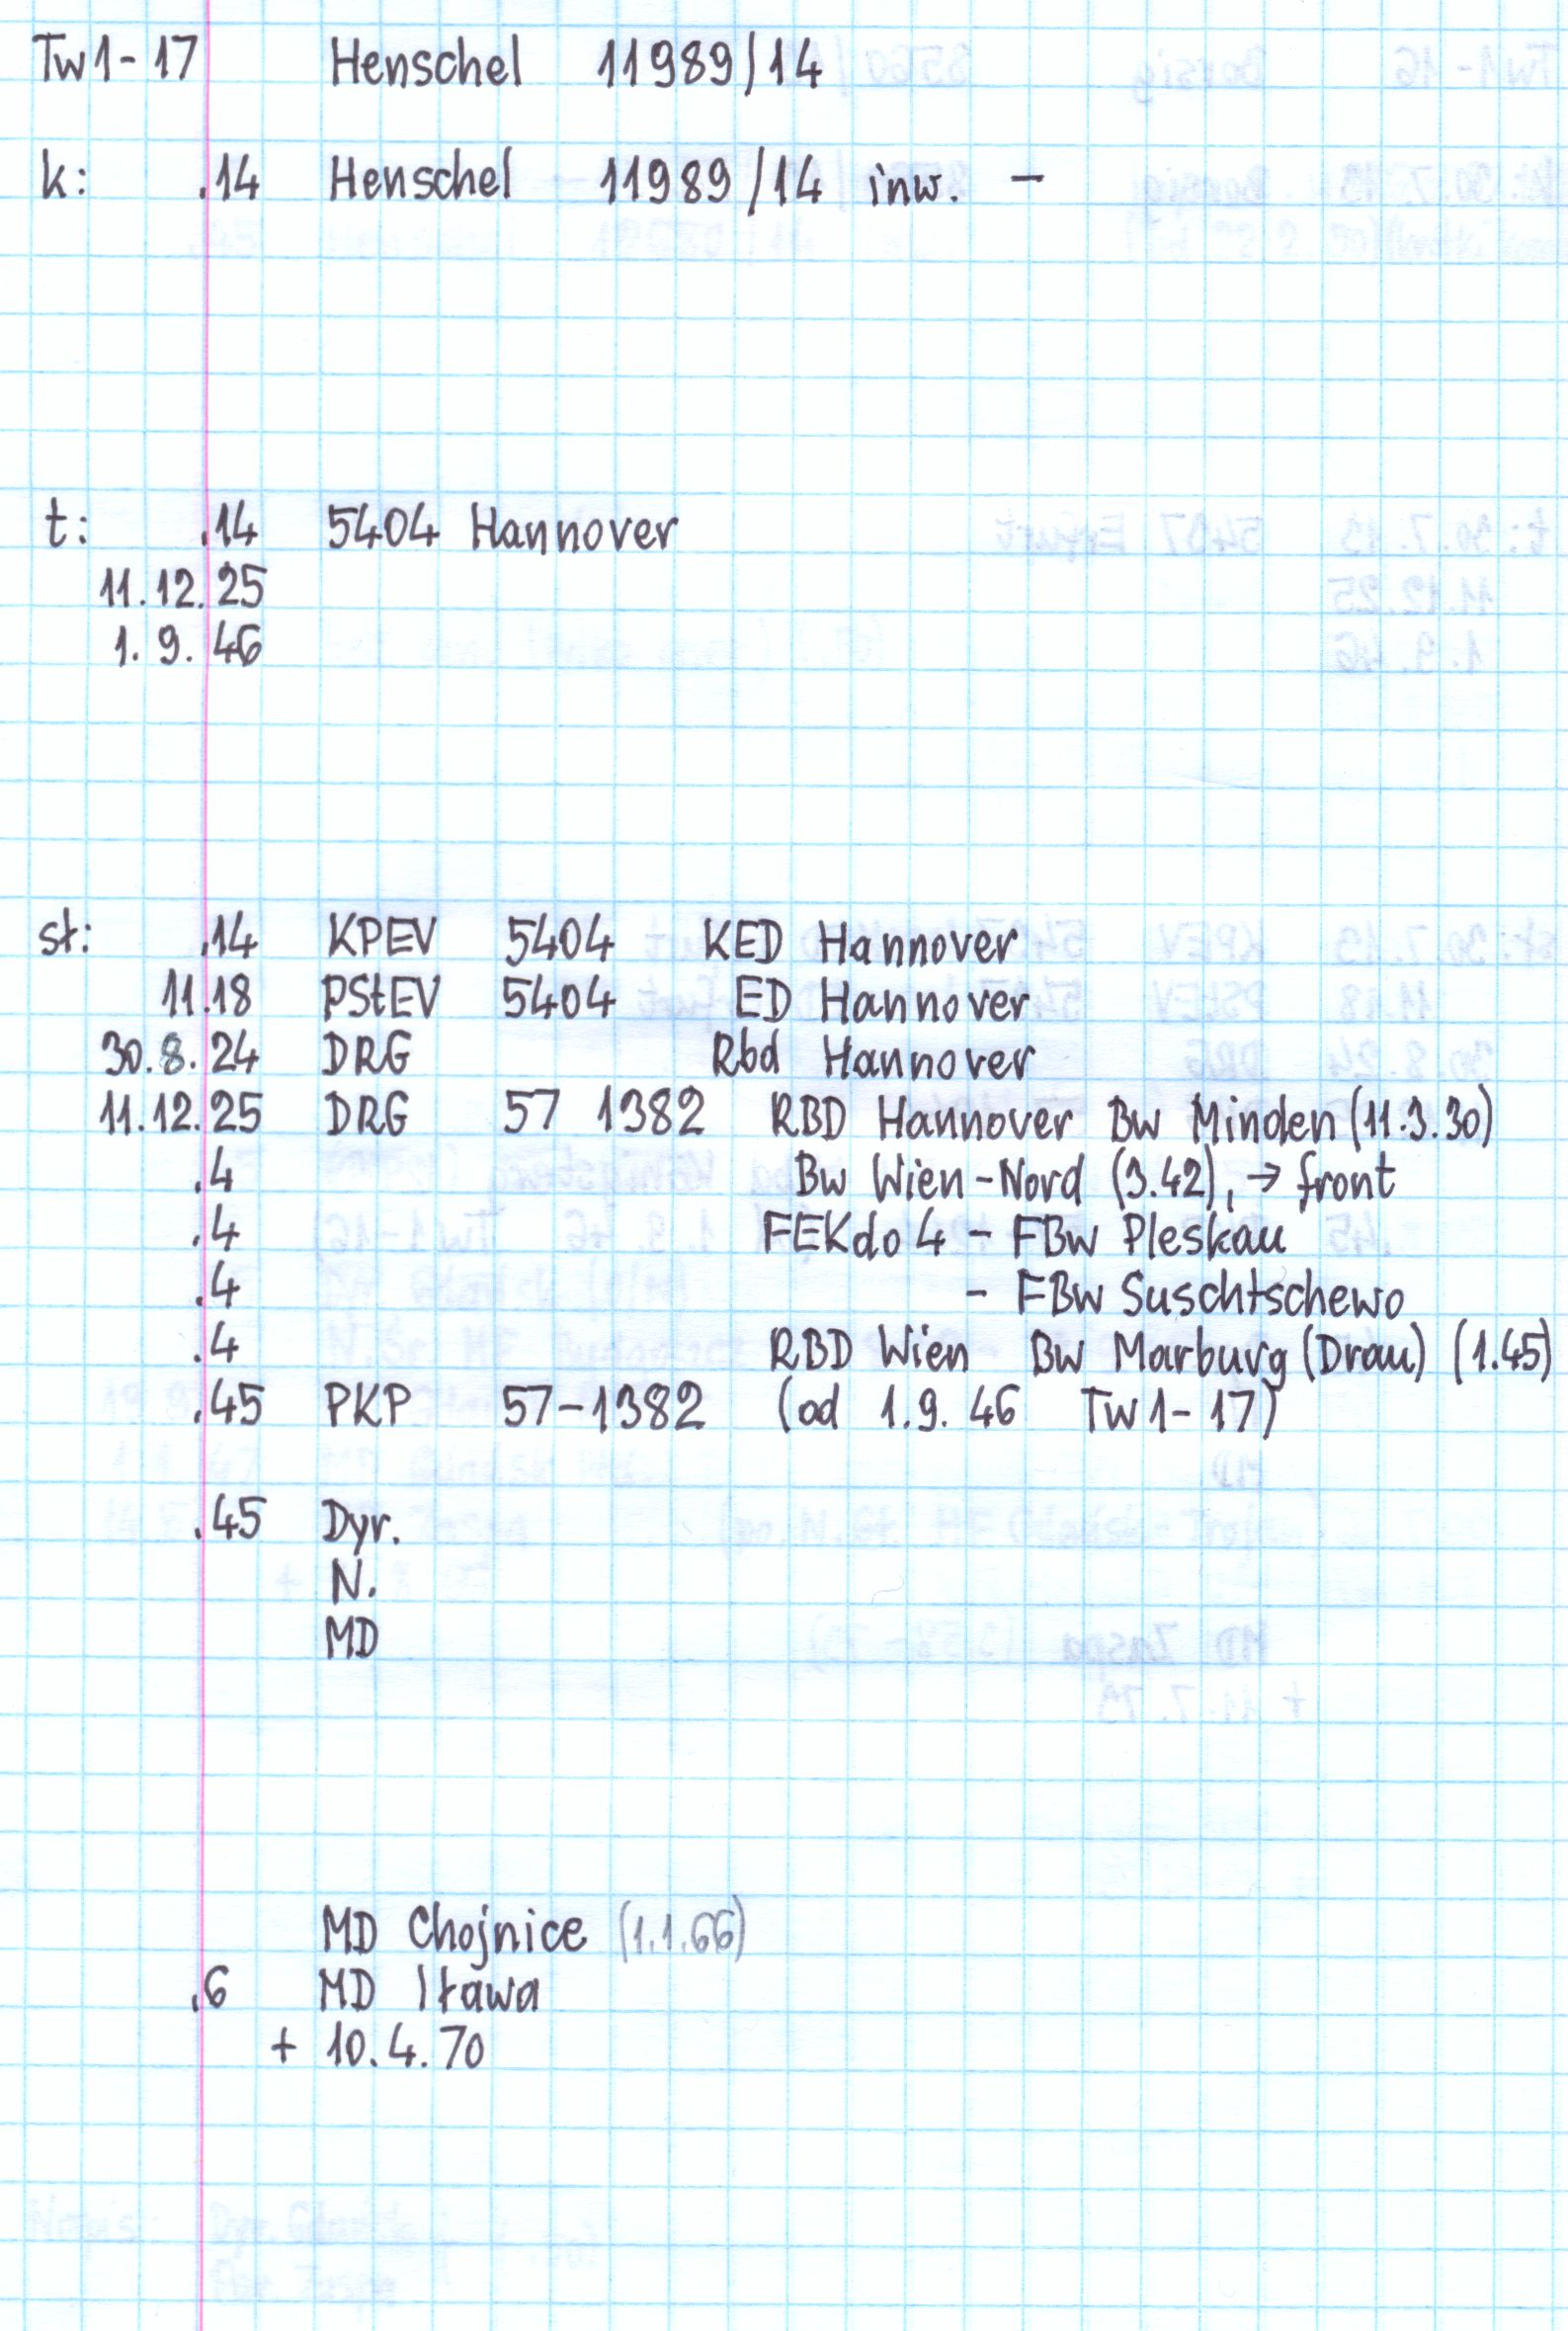 Tw1-17 Henschel 11989/14
k: .14 Henschel 11989/14 inw. -
t: .14 5404 Hannover
11.12.25
1.9.46
st: .14 KPEV 5404 KED Hannover
11.18 PStEV 5404 ED Hannover
30.8.24 DRG Rbd Hannover
11.12.25 DRG 57 1382 RBD Hannover Bw Minden (11.3.30)
.4 Bw Wien-Nord (3.42), → front
.4 FEKdo 4 - FBw Pleskau
.4 - FBw Suschtschewo
.4 RBD Wien Bw Marburg (Drau) (1.45)
.45 PKP 57-1382 (od 1.9.46 Tw1-17)
.45 Dyr.
N.
MD
MD Chojnice (1.1.66)
.6 MD Iława
+ 10.4.70